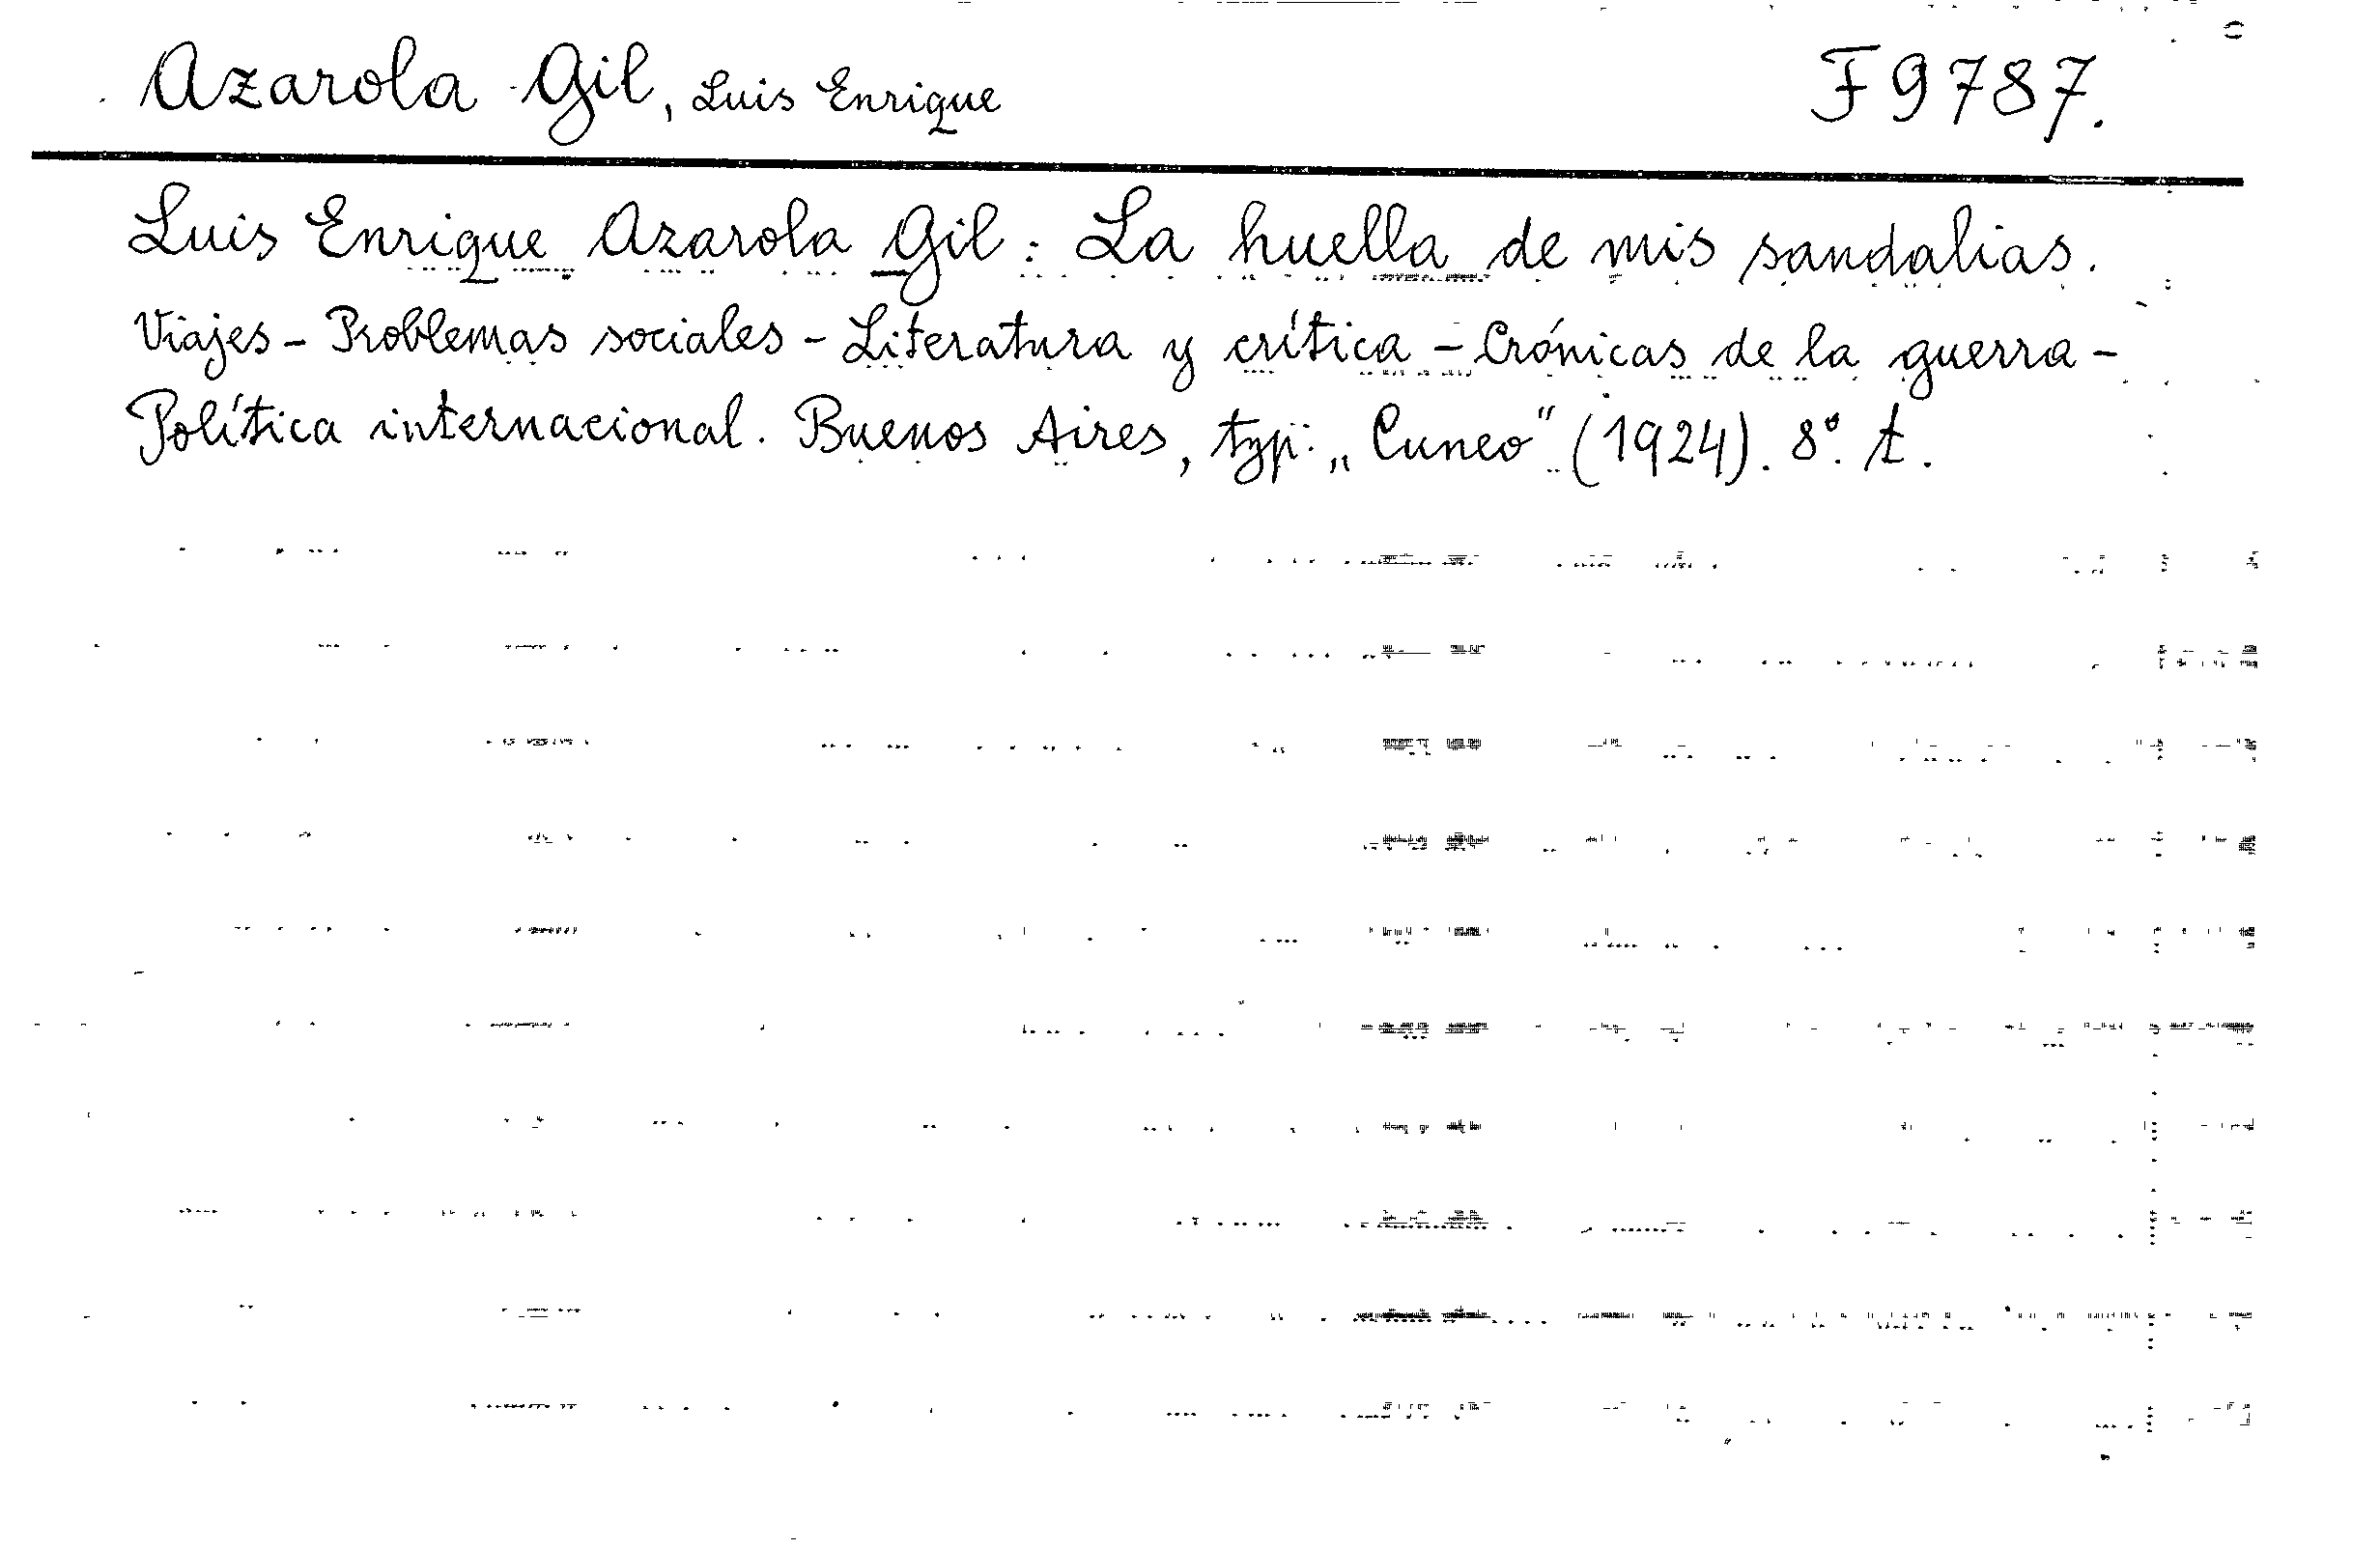 Azarola Gil, Luis Enrique F9787.
Luis Enrique Azarola Gil: La huella de mis sandalias.
Viajes – Problemas sociales – Literatura y crítica – Crónicas de la guerra –
Política internacional. Buenos Aires, typ: „Cuneo" (1924). 8º. t.